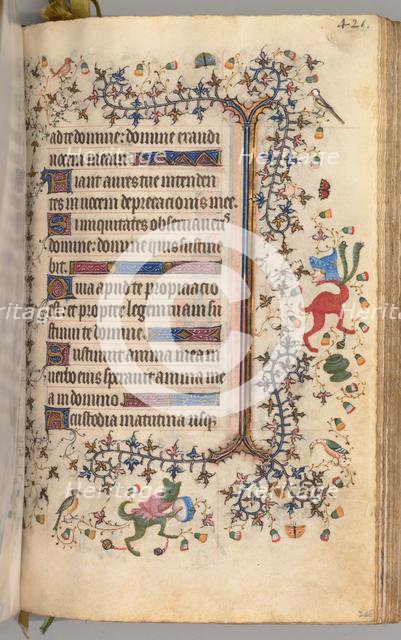 421.
ad te domine: domine exaudi
uocem meam.
Fiant aures tue intenden
tes in uocem deprecacionis mee.
Si iniquitates obseruaueris
domine: domine quis sustine
bit.
Quia apud te propiciacio
est et propter legem tuam sus
tinui te domine.
Sustinuit anima mea in
uerbo eius sperauit anima me
a in domino.
A custodia matutina usqz
Heritage Images